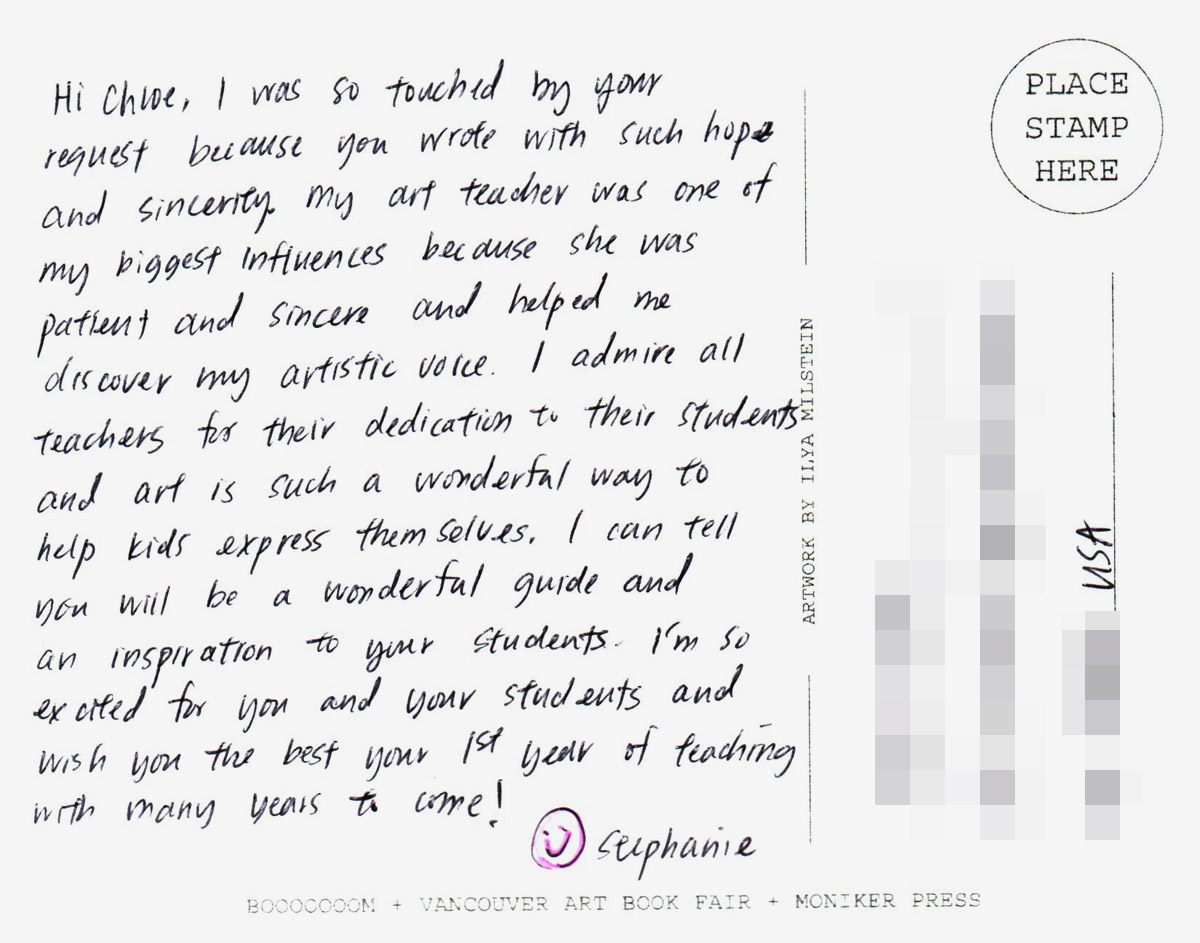 Hi Chloe, I was so touched by your
request because you wrote with such hope
and sincerity. My art teacher was one of
my biggest influences because she was
patient and sincere and helped me
discover my artistic voice. I admire all
teachers for their dedication to their students
and art is such a wonderful way to
help kids express themselves. I can tell
you will be a wonderful guide and
an inspiration to your students. I'm so
excited for you and your students and
wish you the best your 1st year of teaching
with many years to come!
Stephanie
ARTWORK BY ILYA MILSTEIN
PLACE
STAMP
HERE
USA
BOOOOOOOM + VANCOUVER ART BOOK FAIR + MONIKER PRESS